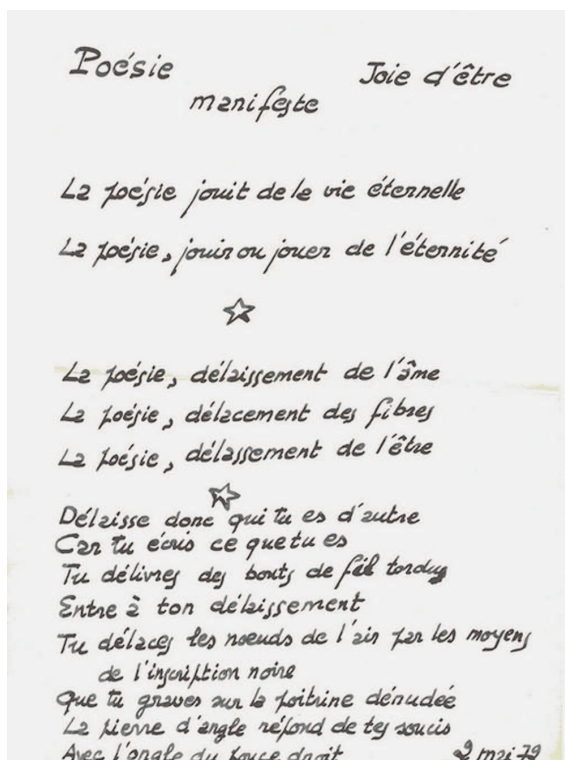 Poésie Joie d'être
manifeste
La poésie jouit de la vie éternelle
La poésie, jouir ou jouer de l'éternité
La poésie, délaissement de l'âme
La poésie, délacement des fibres
La poésie, délassement de l'être
Délaisse donc qui tu es d'autre
Car tu écris ce que tu es
Tu délivres des bouts de fil tordus
Entre à ton délaissement
Tu délaces les nœuds de l'air par les moyens
de l'inscription noire
Que tu graves sur la poitrine dénudée
La pierre d'angle répond de tes soucis
Avec l'ongle du pouce droit 2 mai 79